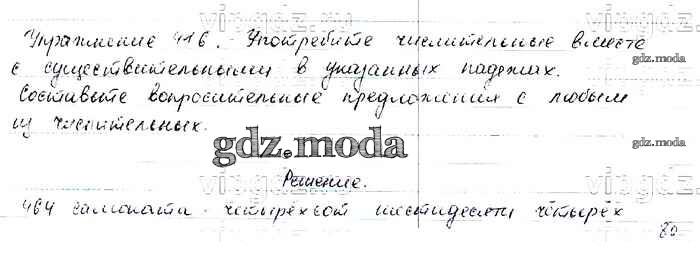 Упражнение 416. Употребите числительные вместе
с существительными в указанных падежах.
Составьте вопросительные предложения с любым
из числительных.
gdz.moda
Решение.
464 самоката - четырёхсот шестидесяти четырёх